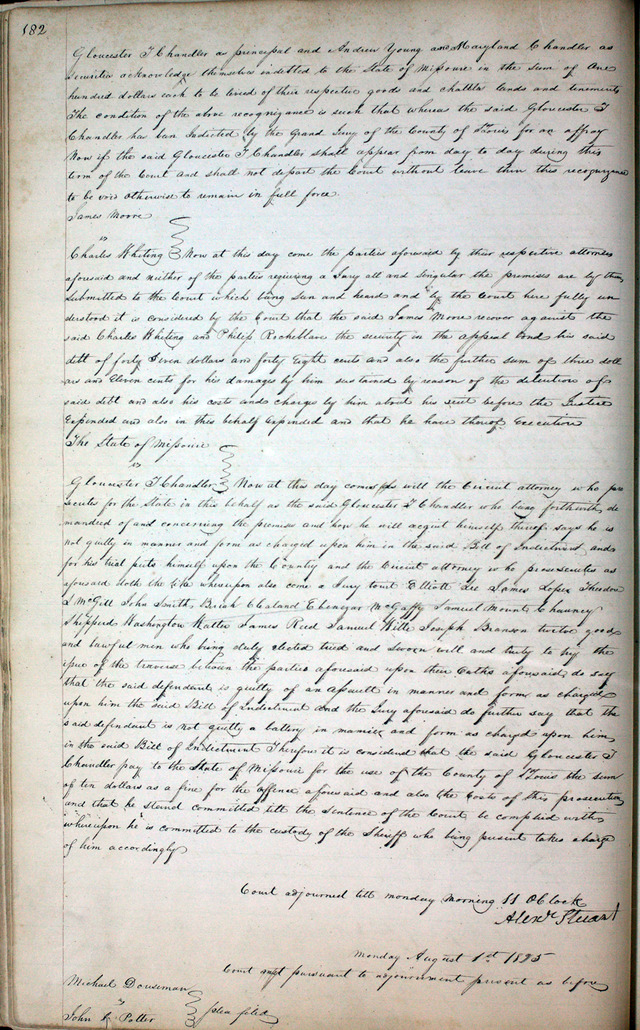 182
Gloucester T Chandler as principal and Andrew Young and Maryland Chandler as
Securities acknowledge themselves indebted to the State of Missouri in the sum of One
hundred dollars each to be levied of their respective goods and chattels lands and tenements
The condition of the above recognizance is such that whereas the said Gloucester T
Chandler has been Indicted by the Grand Jury of the County of St Louis for an affray
Now if the said Gloucester T Chandler shall appear from day to day during this
term of the Court and shall not depart the Court without leave then this recognizance
to be void otherwise to remain in full force
James Morre
vs
Charles Whiting Now at this day come the parties aforesaid by their respective attornies
aforesaid and neither of the parties requiring a Jury all and singular the premises are by them
submitted to the Court which being seen and heard and by the Court here fully un
derstood it is considered by the Court that the said James Morre recover against the
said Charles Whiting and Philip Rocheblave the security in the appeal bond his said
debt of forty Seven dollars and forty Eight cents and also the further sum of three doll
ars and Eleven cents for his damages by him sustained by reason of the detention of
said debt and also his costs and charges by him about his suit before the Justice
Expended and also in this behalf Expended and that he have thereof Execution
The State of Missouri
vs
Gloucester T Chandler Now at this day comes as well the Circuit attorney who pro
secutes for the State in this behalf as the said Gloucester T Chandler who being forthwith de
manded of and concerning the premises and how he will acquit himself thereof says he is
not guilty in manner and form as charged upon him in the said Bill of Indictment and
for his trial puts himself upon the Country and the Circuit attorney who prosecutes as
aforesaid doth the like whereupon also come a Jury towit Elliott Lee James Lopez Theodore
L McGill John Smith Brick Cleland Ebenezer McGaffy Samuel Mount Chauncy
Shepperd Washington Hatter James Reed Samuel Wills Joseph Branson twelve good
and lawful men who being duly elected tried and Sworn well and truly to try the
issue of the traverse between the parties aforesaid upon their Oaths aforesaid do say
that the said defendant is guilty of an assault in manner and form as charged
upon him the said Bill of Indictment and the Jury aforesaid do further say that the
said defendant is not guilty a battery in manner and form as charged upon him
in the said Bill of Indictment Therefore it is considered that the said Gloucester T
Chandler pay to the State of Missouri for the use of the County of St Louis the sum
of ten dollars as a fine for the Offence aforesaid and also the Costs of this prosecution
and that he stand committed till the Sentence of the Court be complied with
whereupon he is committed to the custody of the Sheriff who being present takes charge
of him accordingly
Court adjourned till monday morning 11 OClock
Alexr Stuart
Monday August 1st 1825
Court met pursuant to adjournment present as before
Michael Dousman
vs
John Potter plea filed